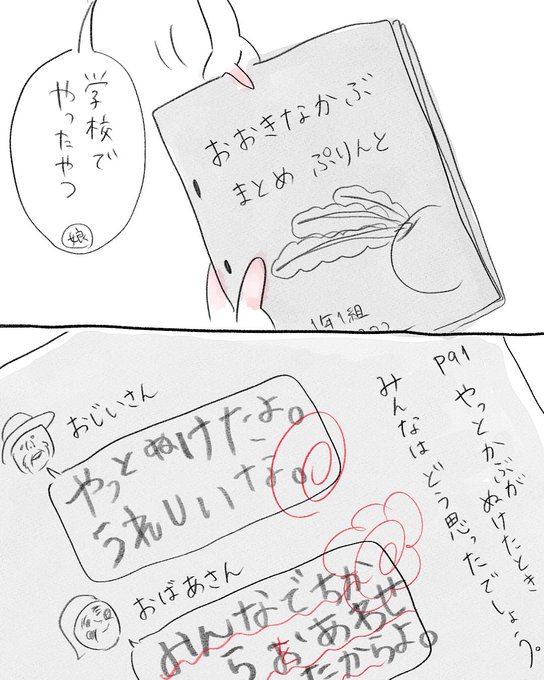 学校で
やったやつ
娘
おおきなかぶ
まとめ ぷりんと
1年1組
P91 やっとかぶがぬけたとき
みんなはどう思ったでしょう。
おじいさん
やっとぬけたよ。
うれしいなあ。
おばあさん
みんなでちか
らおあわせ
たからよ。